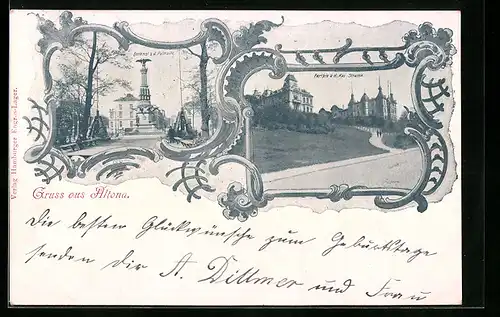 Denkmal a.d. Palmaille
Partie a.d. Kai-Strasse
Gruss aus Altona.
Verlag Hamburger Engr.-Lager.
Die besten Glückwünsche zum Geburtstage
senden Dir A. Dittmer und Frau